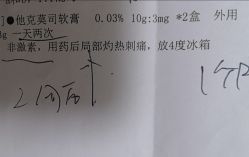 ]●他克莫司软膏 0.03% 10g:3mg *2盒 外用
g 一天两次
非激素，用药后局部灼热刺痛，放4度冰箱
2周后